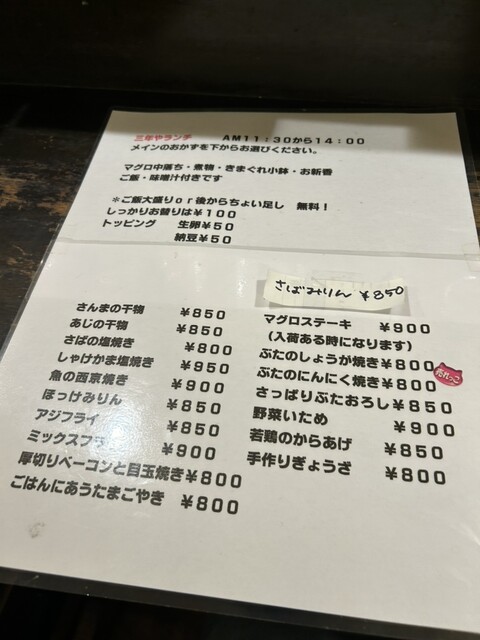 三年やランチ AM11:30から14:00
メインのおかずを下からお選びください。
マグロ中落ち・煮物・きまぐれ小鉢・お新香
ご飯・味噌汁付きです
＊ご飯大盛りor後からちょい足し 無料！
しっかりお替りは¥100
トッピング 生卵¥50
納豆¥50
さばみりん ¥850
さんまの干物 ¥850
あじの干物 ¥850
さばの塩焼き ¥800
しゃけかま塩焼き ¥950
魚の西京焼き ¥900
ほっけみりん ¥850
アジフライ ¥850
ミックスフラ ¥900
厚切りベーコンと目玉焼き¥800
ごはんにあうたまごやき ¥800
マグロステーキ ¥900
(入荷ある時になります)
ぶたのしょうが焼き¥800
ぶたのにんにく焼き¥800
売れっこ
さっぱりぶたおろし¥850
野菜いため ¥900
若鶏のからあげ ¥850
手作りぎょうざ ¥800